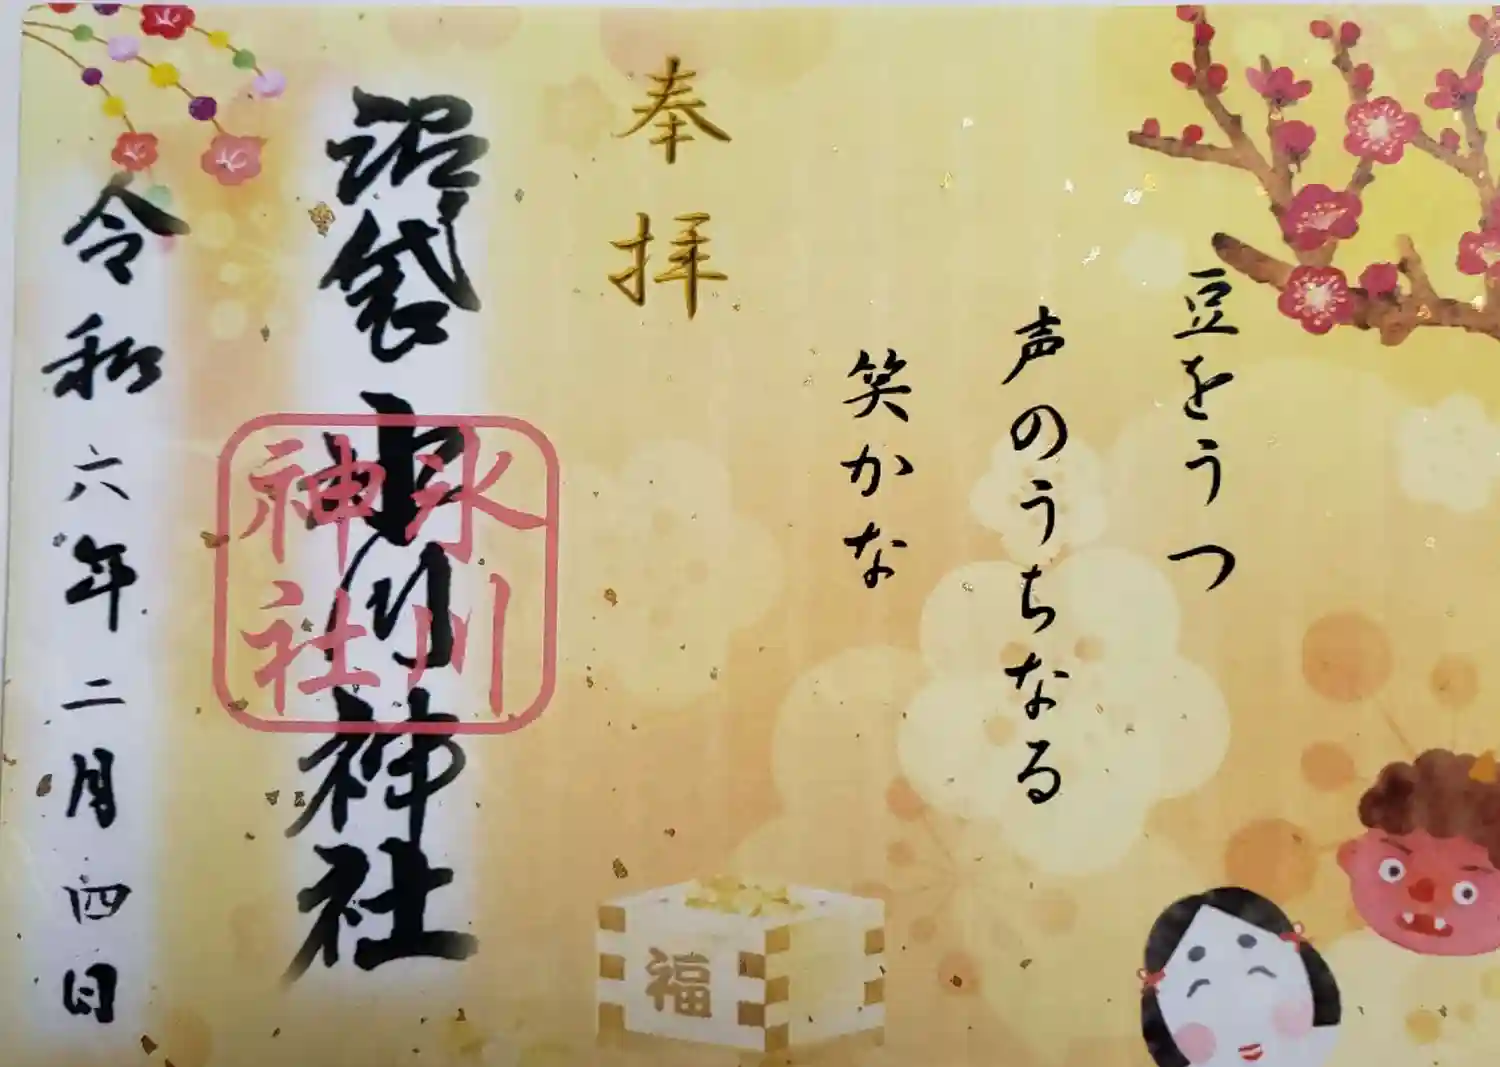 豆をうつ
声のうちなる
笑かな
奉拝
沼袋氷川神社
氷川
神社
令和六年二月四日
福